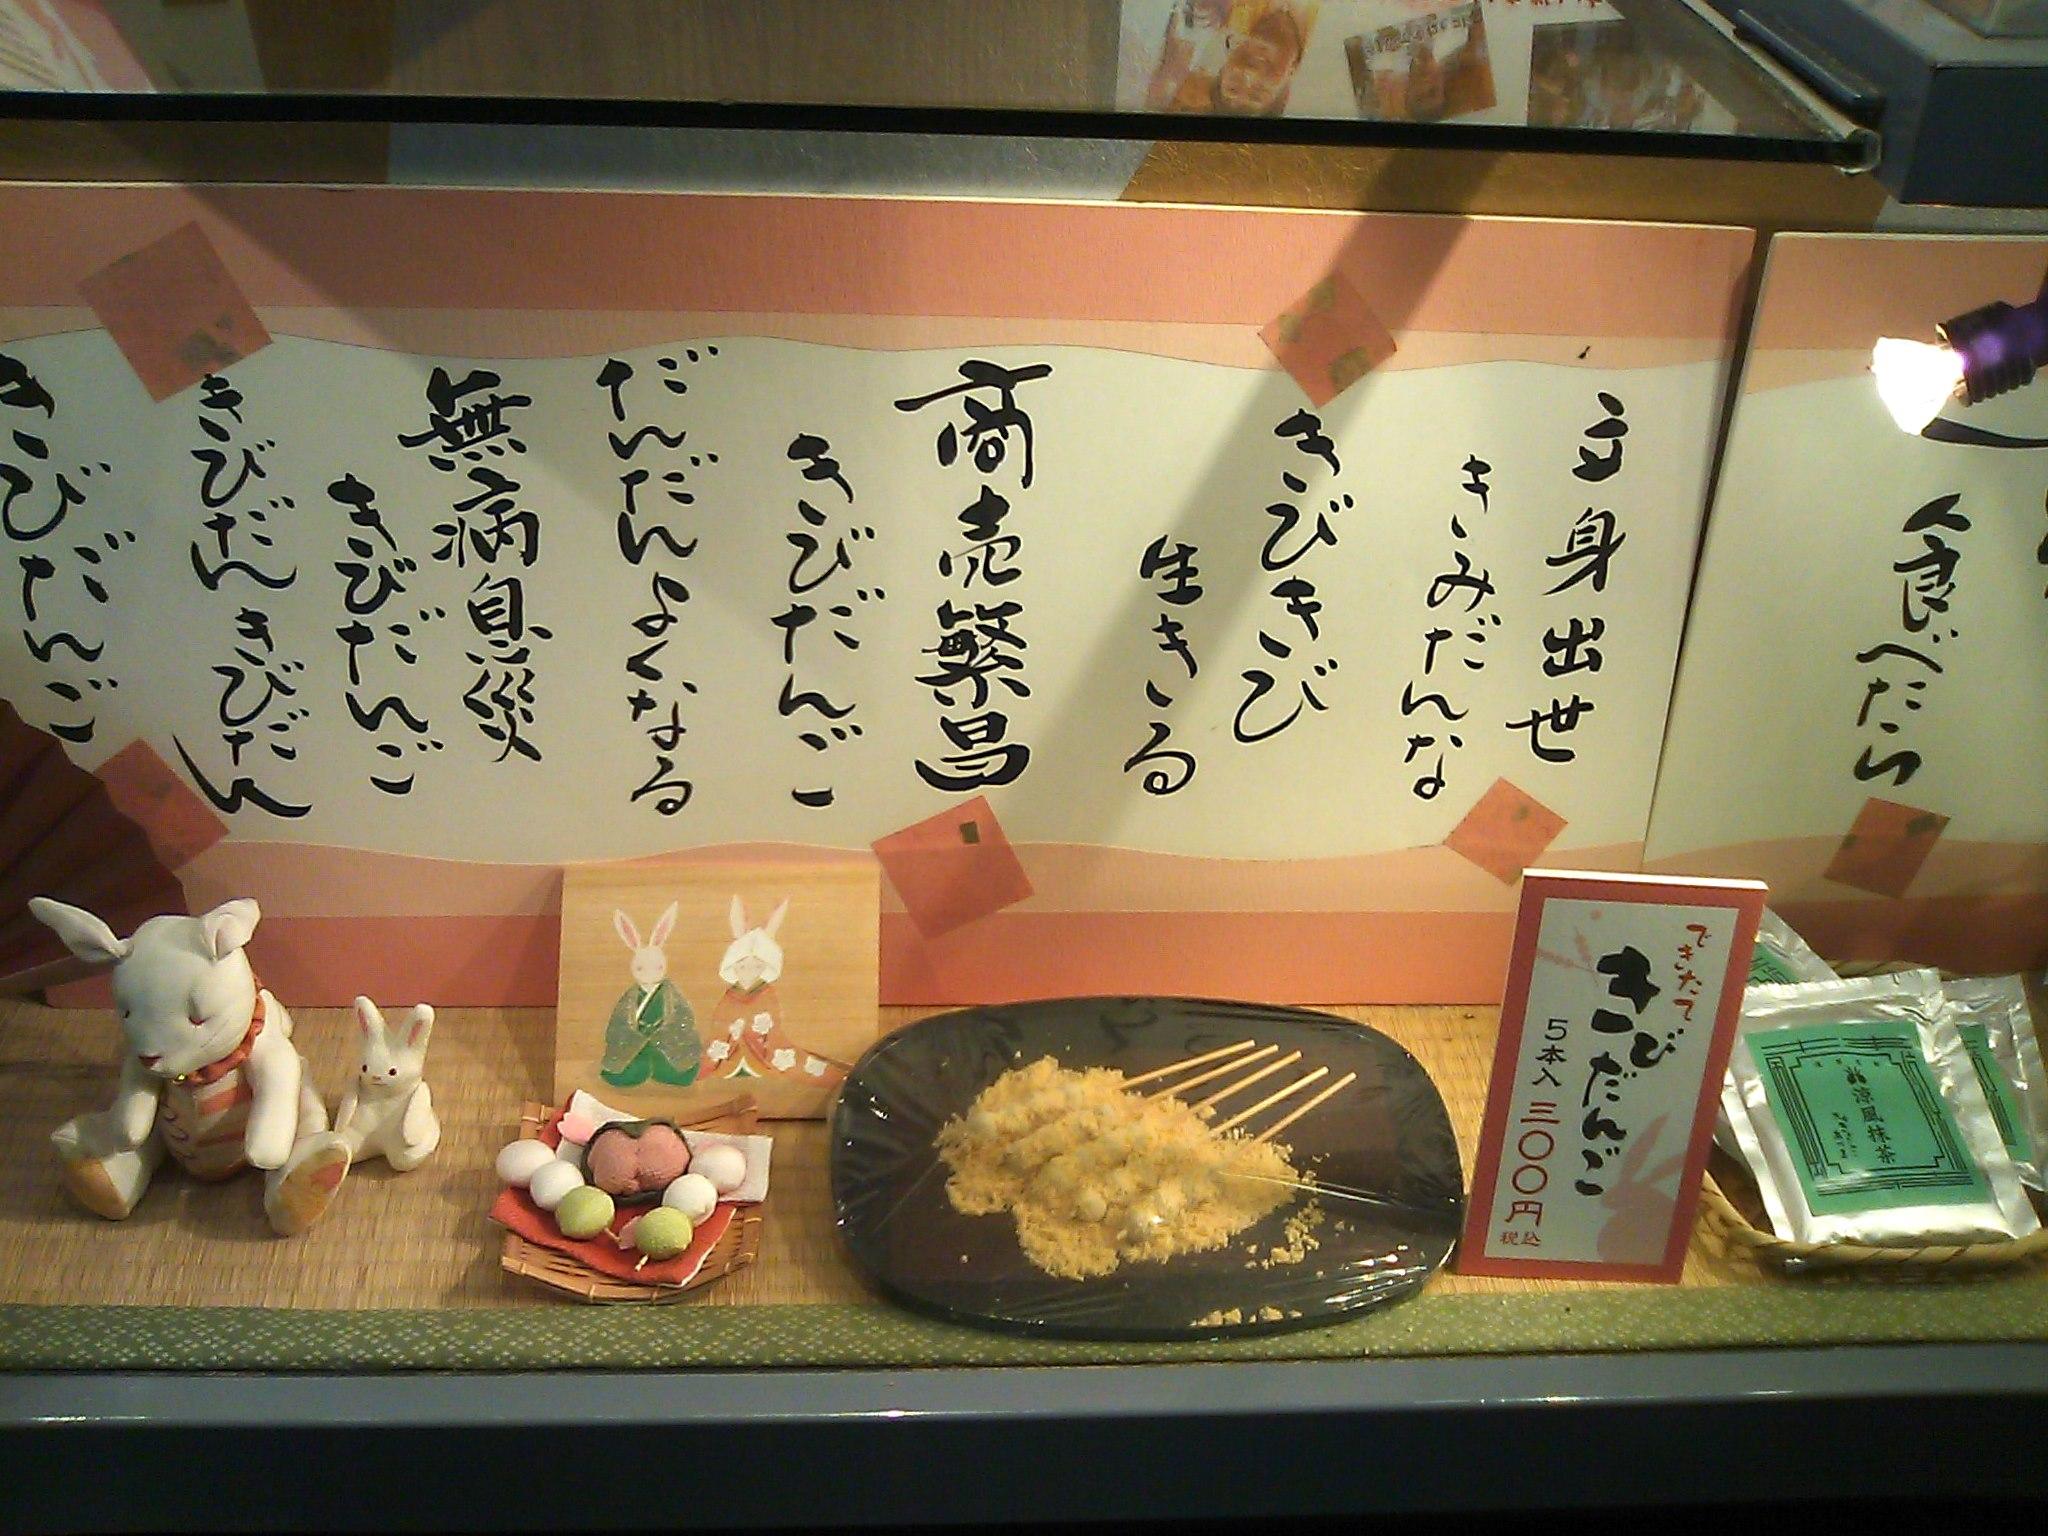 食べたら
立身出世
きみだんな
きびきび
生きる
商売繁昌
きびだんご
だんだんよくなる
無病息災
きびだんご
きびだん
きびだん
きびだんご
できたて
きびだんご
5本入 三〇〇円
税込
涼風抹茶